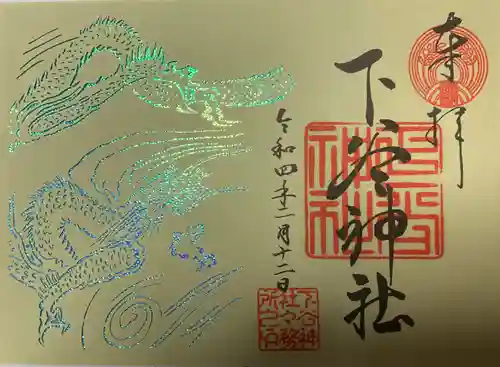 奉拝
下谷神社
令和四年一月十二日
下谷神
社社務
所之印